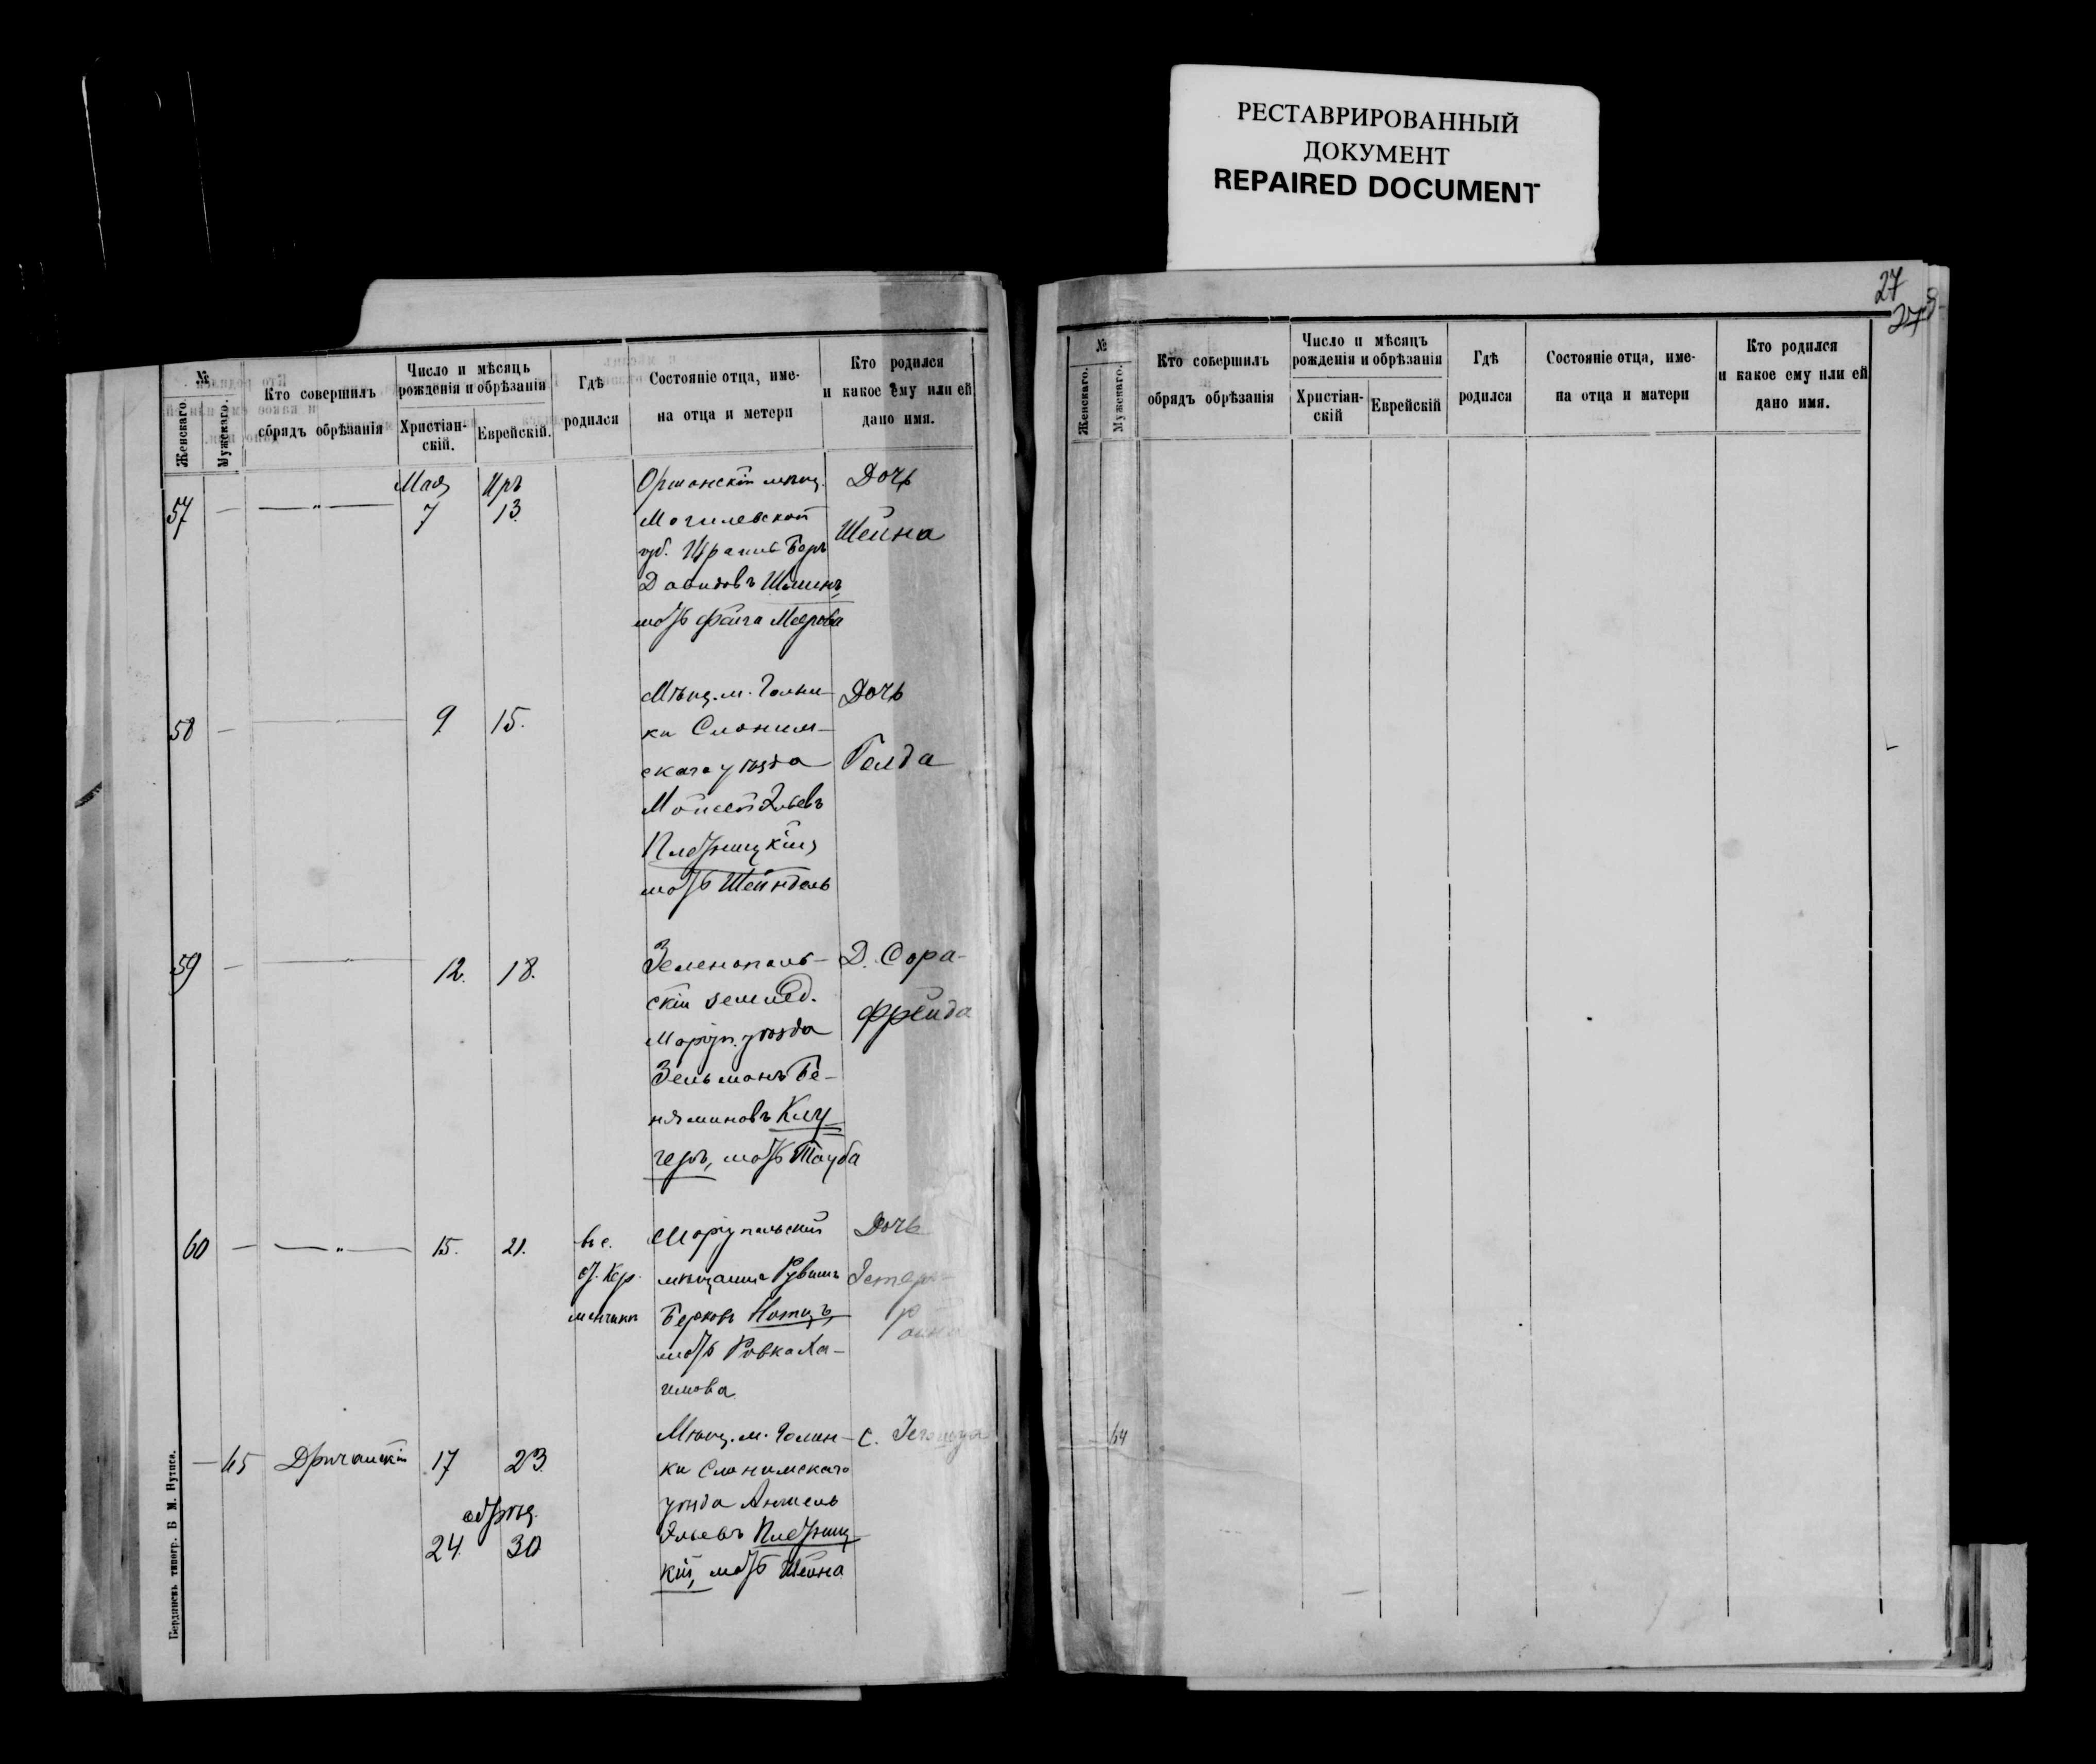 РЕСТАВРИРОВАННЫЙ
ДОКУМЕНТ
REPAIRED DOCUMENT
№
Женскаго.
Мужскаго.
Кто совершилъ
обрядъ обрѣзанія
Число и мѣсяцъ
рожденія и обрѣзанія
Христіан-
скій.
Еврейскій.
Гдѣ
родился
Состояніе отца, име-
на отца и метери
Кто родился
и какое ему или ей
дано имя.
57 — — „ —
Мая 7
Иръ 13
Оршанскій мѣщ.
Могилевской
губ. Израиль Беръ
Давидовъ
мать Фейга Меерова
Дочь
Шейна
58 — —
9
15.
Мѣщ. м. Голын-
ки Слоним-
скаго уѣзда
Мойсей Эльевъ
Плетницкій,
мать Шейндель
Дочь
Голда
59 — —
12.
18.
Зеленополь-
скій землед.
Маріуп. уѣзда
Зельманъ Бе-
няминовъ Клу-
геръ, мать Тауба
Д. Сора-
Фрейда
60 — — „ —
15.
21.
въ с.
ст. Кер-
менчикъ
Маріупольскій
мѣщанинъ Рувинъ
Берковъ
мать Ривка Ха-
имова
Дочь
Эстеръ-
— 65
17
23
обрѣз.
24.
30
Мѣщ. м. Голын-
ки Слонимскаго
уѣзда Аншель
Эльевъ Плетниц-
кій, мать Шейна
С.
Бердянскъ типогр. Б М. Нутиса.
27
№
Женскаго.
Мужскаго.
Кто совершилъ
обрядъ обрѣзанія
Число и мѣсяцъ
рожденія и обрѣзанія
Христіан-
скій
Еврейскій
Гдѣ
родился
Состояніе отца, име-
на отца и матери
Кто родился
и какое ему или ей
дано имя.
64